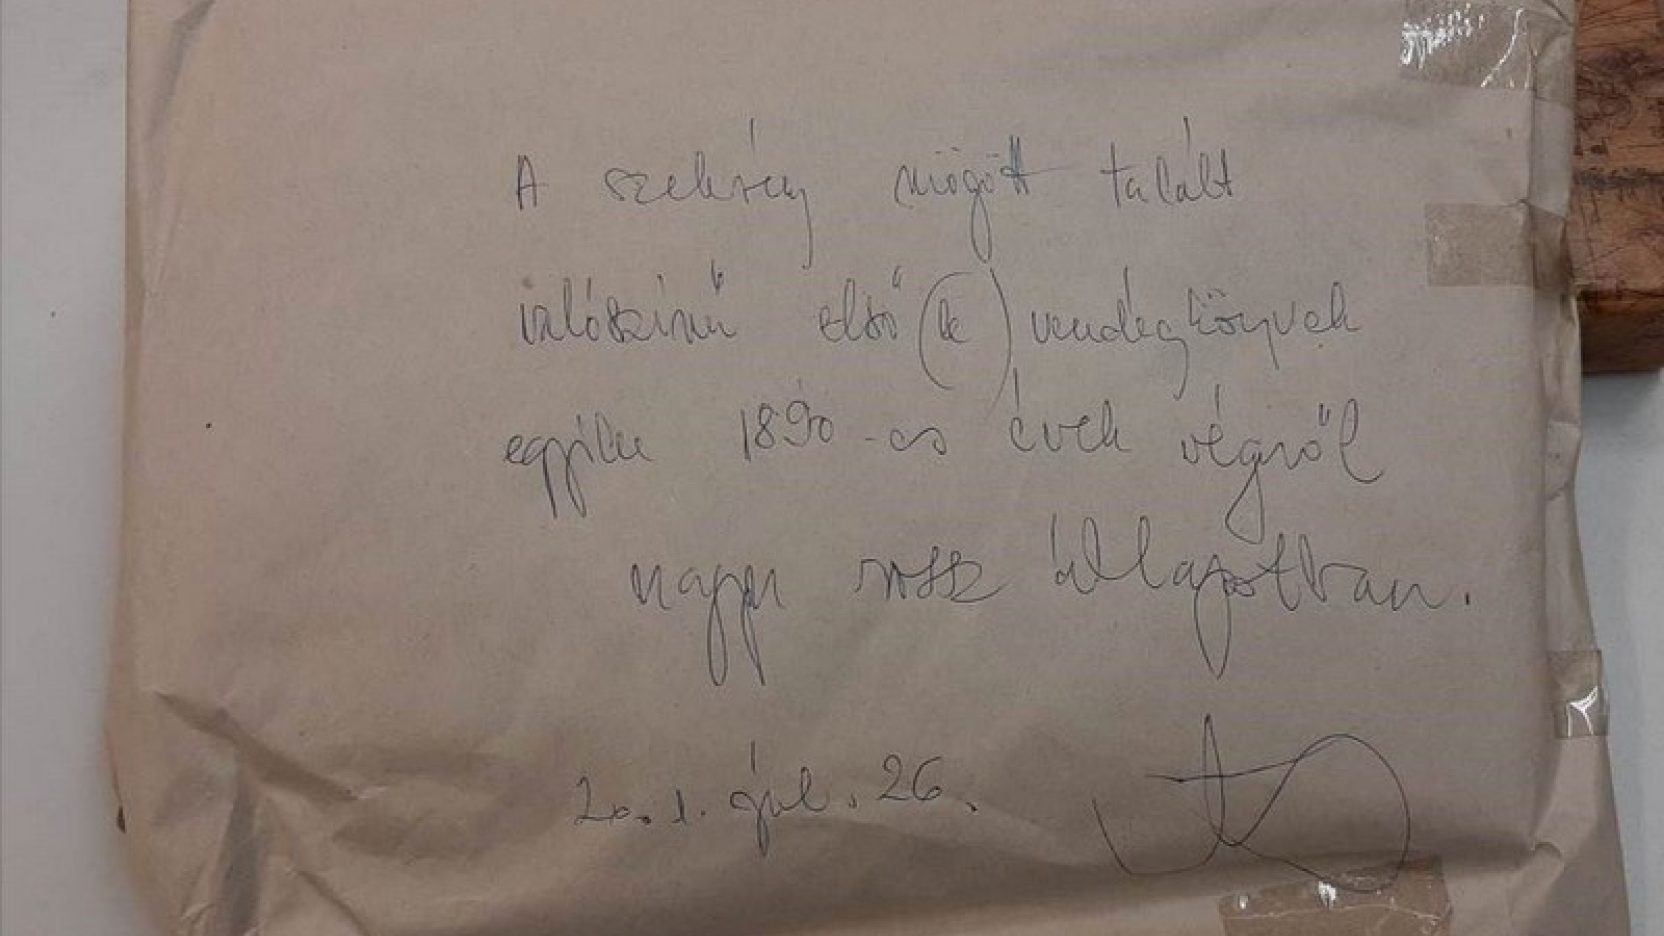 A szekrény mögött talált
valószínű első (k) vendégkönyvek
egyike 1890-es évek végről
nagyon rossz állapotban.
júl. 26.